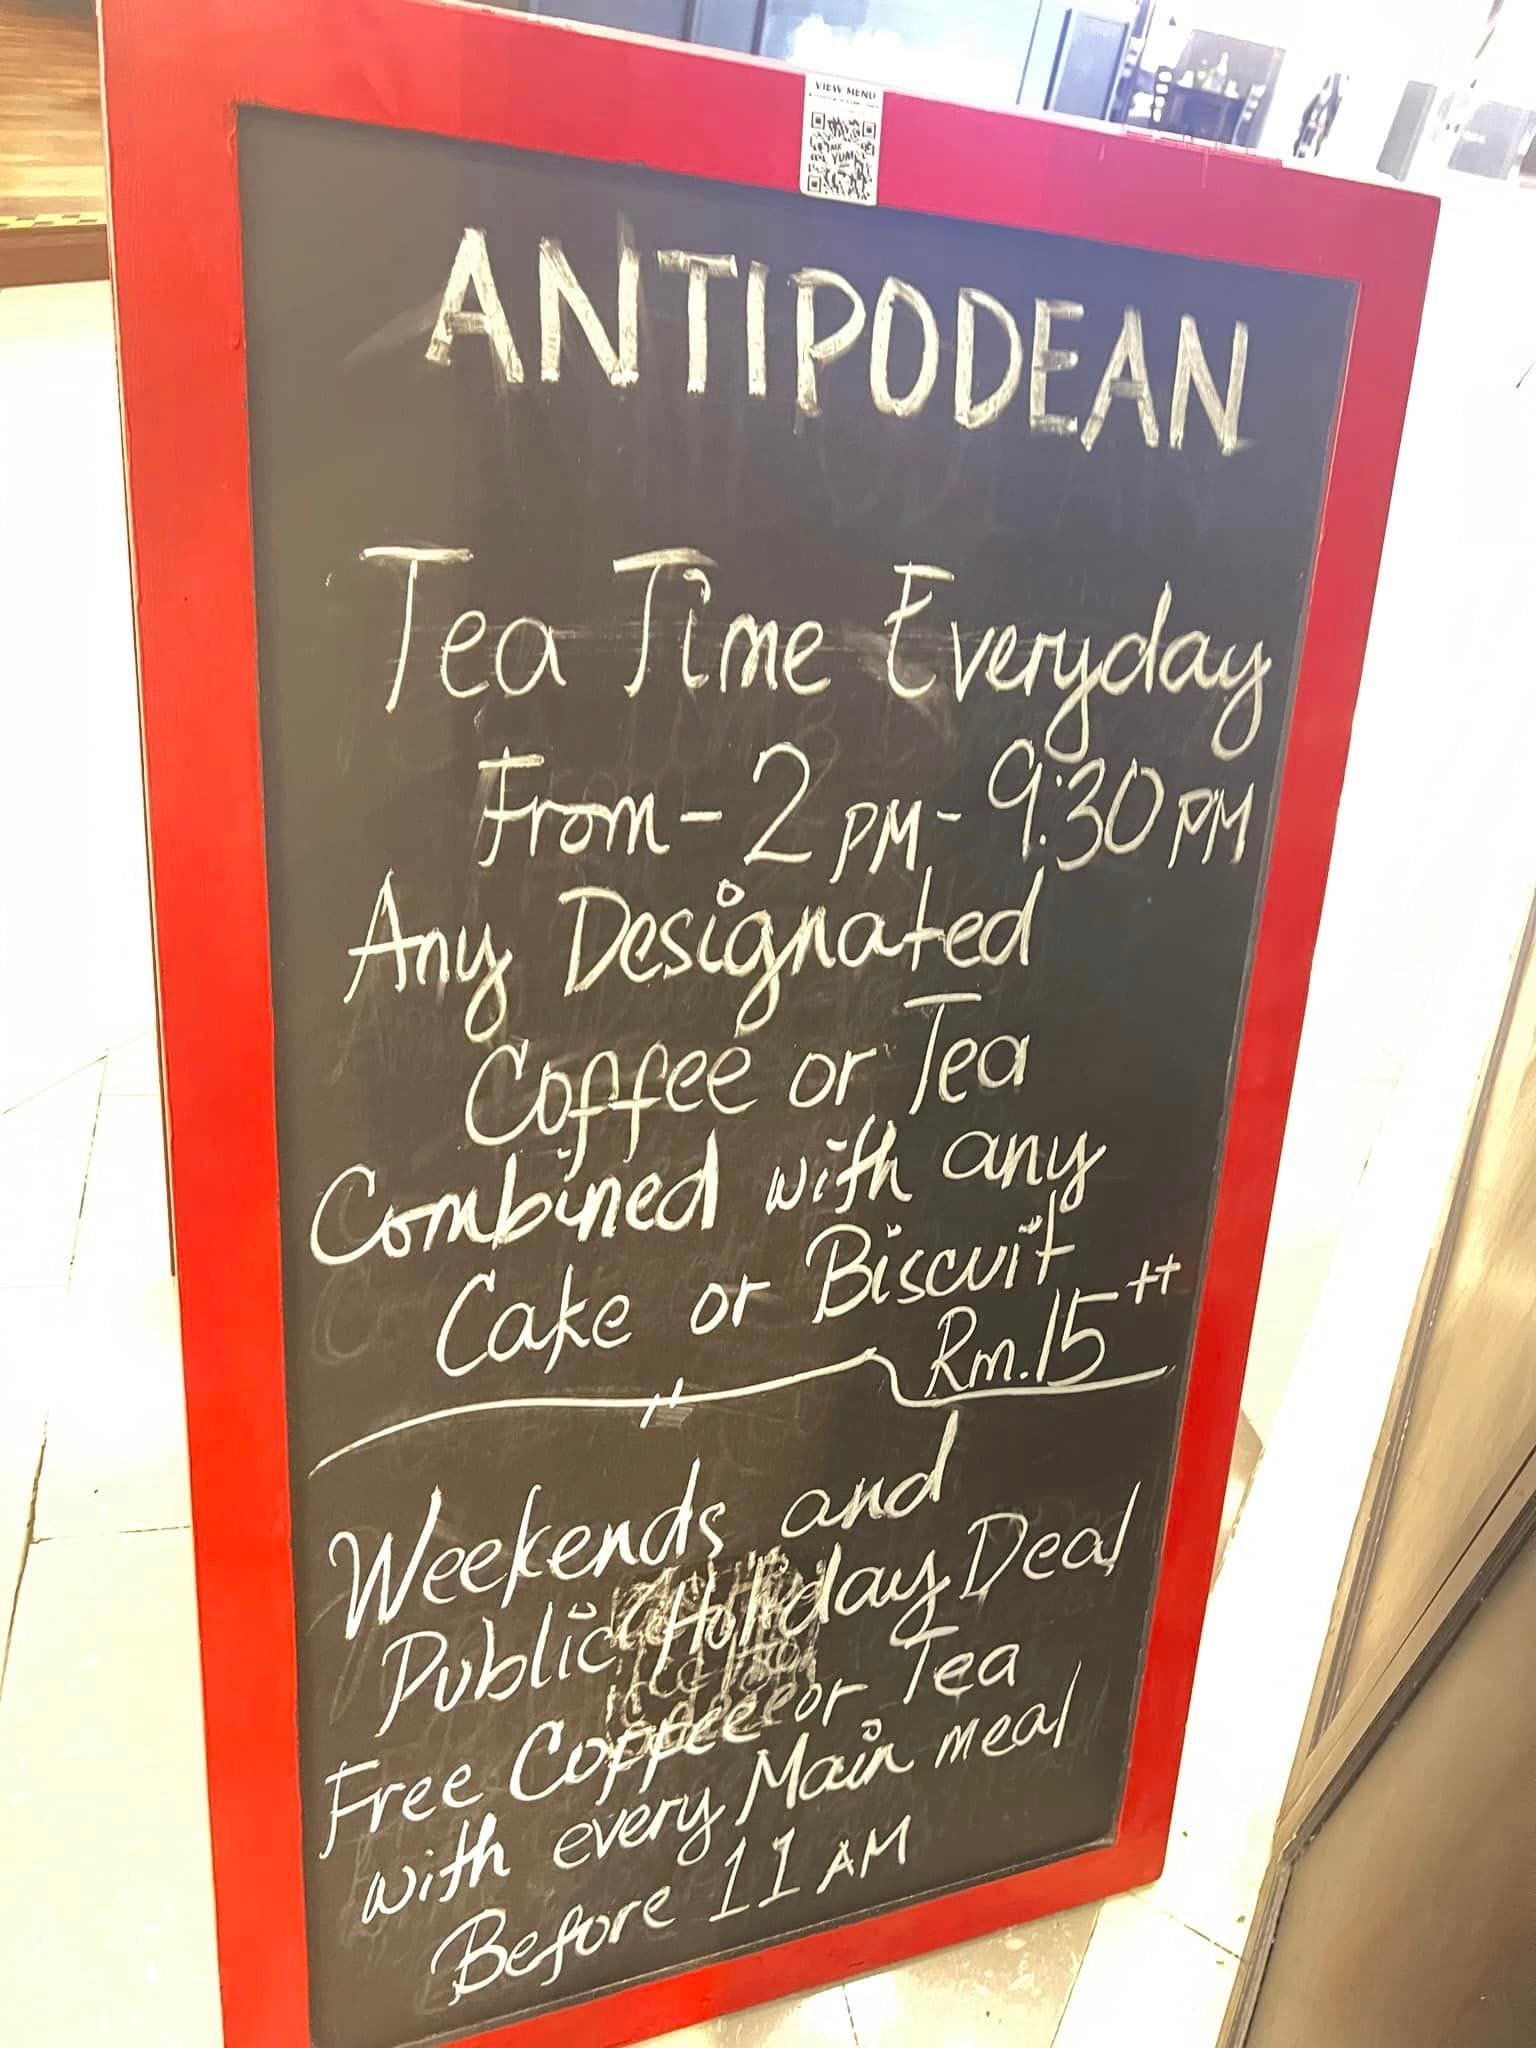 VIEW MENU
YUM
ANTIPODEAN
Tea Time Everyday
From - 2 PM - 9:30 PM
Any Designated
Coffee or Tea
Combined with any
Cake or Biscuit
Rm.15++
Weekends and
Public Holiday Deal
Free Coffee or Tea
with every Main meal
Before 11 AM